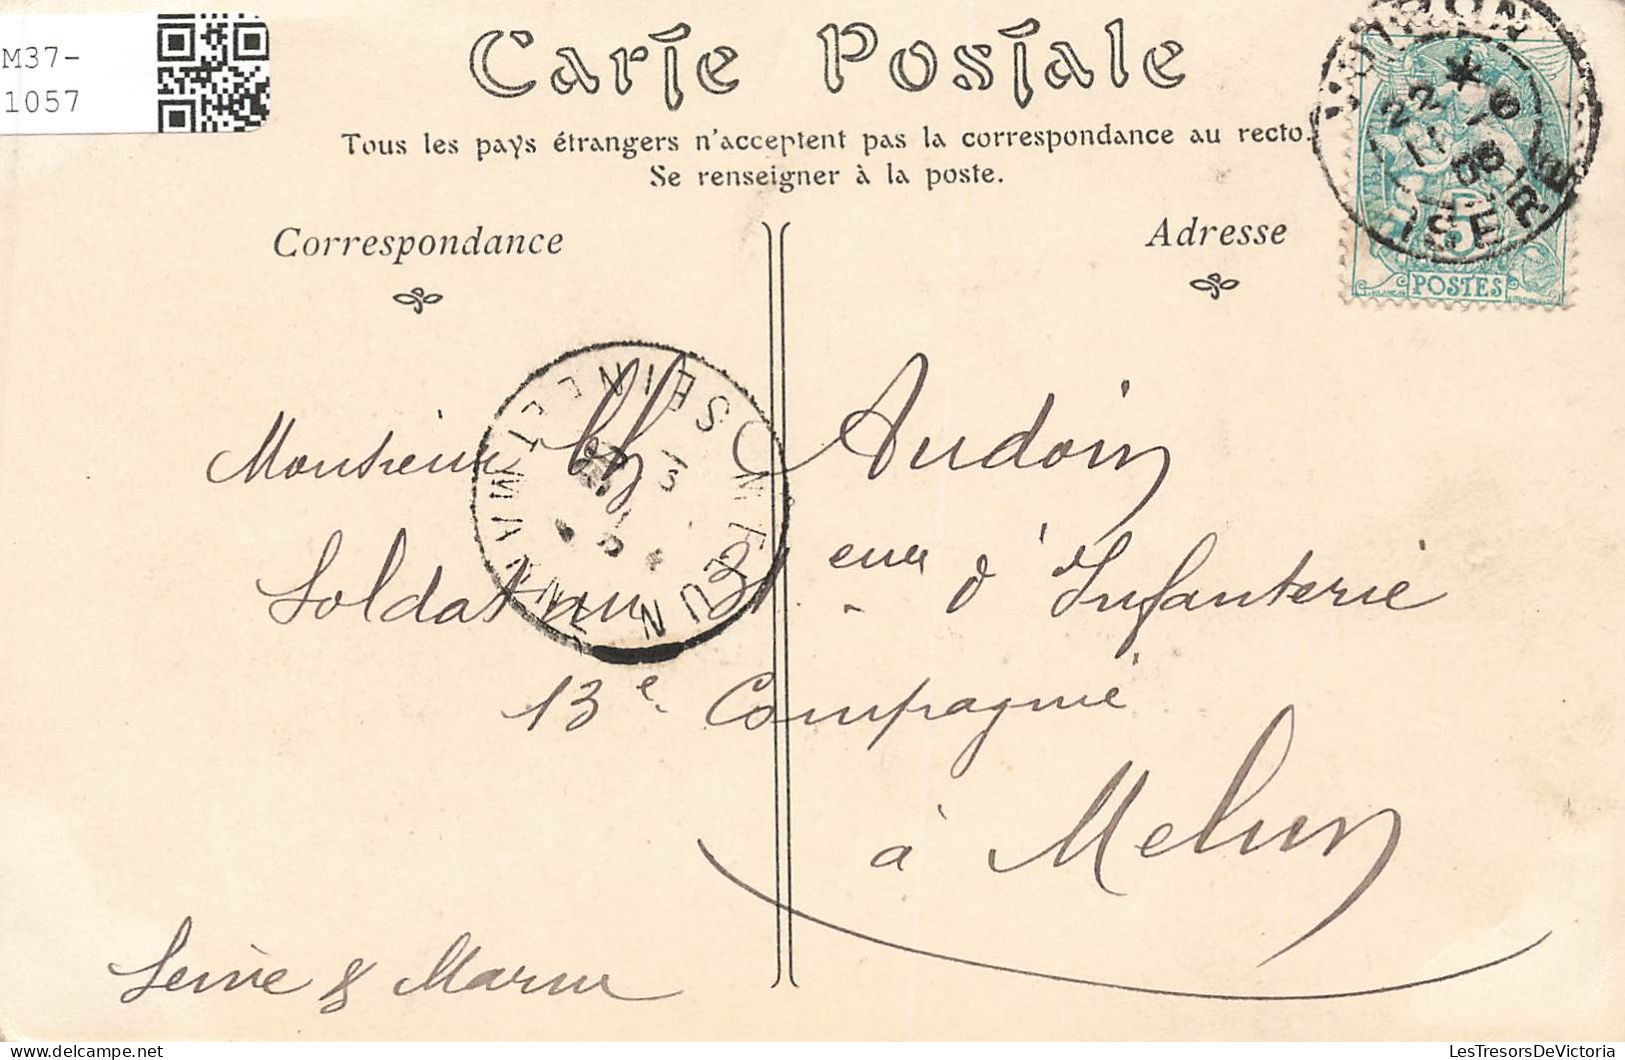 M37-
1057
Carte Postale
Tous les pays étrangers n'acceptent pas la correspondance au recto.
Se renseigner à la poste.
Correspondance
Adresse
VOIRON
22 * 6
11
06
ISERE
5
POSTES
MELUN
SEINE ET MARNE
Monsieur Audoin
Soldat au 31 eme d'Infanterie
13e Compagnie
à Melun
Seine & Marne
LesTresorsDeVictoria.delcampe.net
LesTresorsDeVictoria